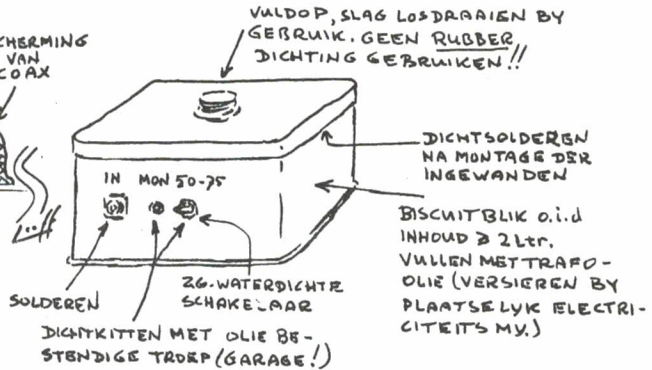 VULDOP, SLAG LOSDRAAIEN BY
GEBRUIK. GEEN RUBBER
DICHTING GEBRUIKEN!!
CHERMING
VAN
COAX
DICHTSOLDEREN
NA MONTAGE DER
INGEWANDEN
IN MON 50-75
BISCUITBLIK o.i.d
INHOUD ≥ 2Ltr.
VULLEN MET TRAFO-
OLIE (VERSIEREN BY
PLAATSELYK ELECTRI-
CITEITS MY.)
SOLDEREN
ZG. WATERDICHTE
SCHAKELAAR
DICHTKITTEN MET OLIE BE-
STENDIGE TROEP (GARAGE!)